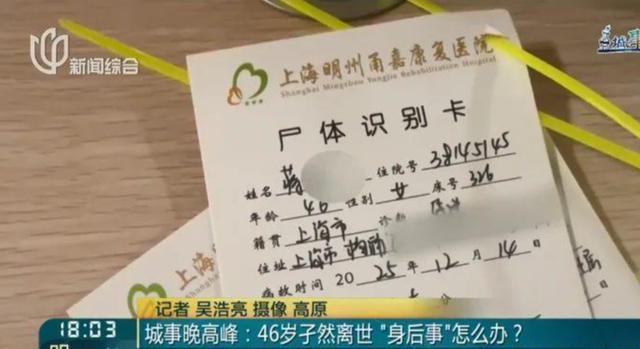 新闻综合
上海明州甬嘉康复医院
Shanghai Mingzhou Yongjia Rehabilitation Hospital
尸体识别卡
姓名 蒋 住院号 38145145
年龄 46 性别 女 床号 326
籍贯 上海市 诊断
住址 上海市
病故时间 2025年12月14日
记者 吴浩亮 摄像 高原
18:03
城事晚高峰：46岁孑然离世 "身后事"怎么办？